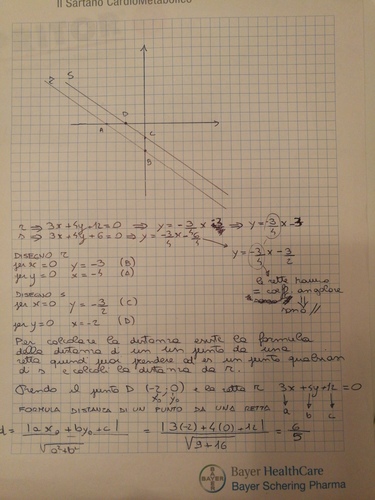 Il Sartano CardioMetabolico
r s
A D
C
B
r ⇒ 3x+4y+12=0 ⇒ y = -3/4 x -3 ⇒ y = -3/4 x -3
s ⇒ 3x+4y+6=0 ⇒ y = -3/4 x -6/4
y = -3/4 x -3/2
DISEGNO r
per x=0 y=-3 (B)
per y=0 x=-4 (A)
le rette hanno
= coeff. angolare
⇓
sono //
DISEGNO s
per x=0 y=-3/2 (C)
per y=0 x=-2 (D)
Per calcolare la distanza esiste la formula
della distanza di un punto da una
retta quindi puoi prendere ad es un punto qualsiasi
di s e calcoli la distanza da r.
Prendo il punto D (-2;0) e la retta r 3x+4y+12=0
x₀ y₀ a b c
FORMULA DISTANZA DI UN PUNTO DA UNA RETTA
d = |ax₀+by₀+c| / √(a²+b²) = |3(-2)+4(0)+12| / √(9+16) = 6/5
BAYER
Bayer HealthCare
Bayer Schering Pharma